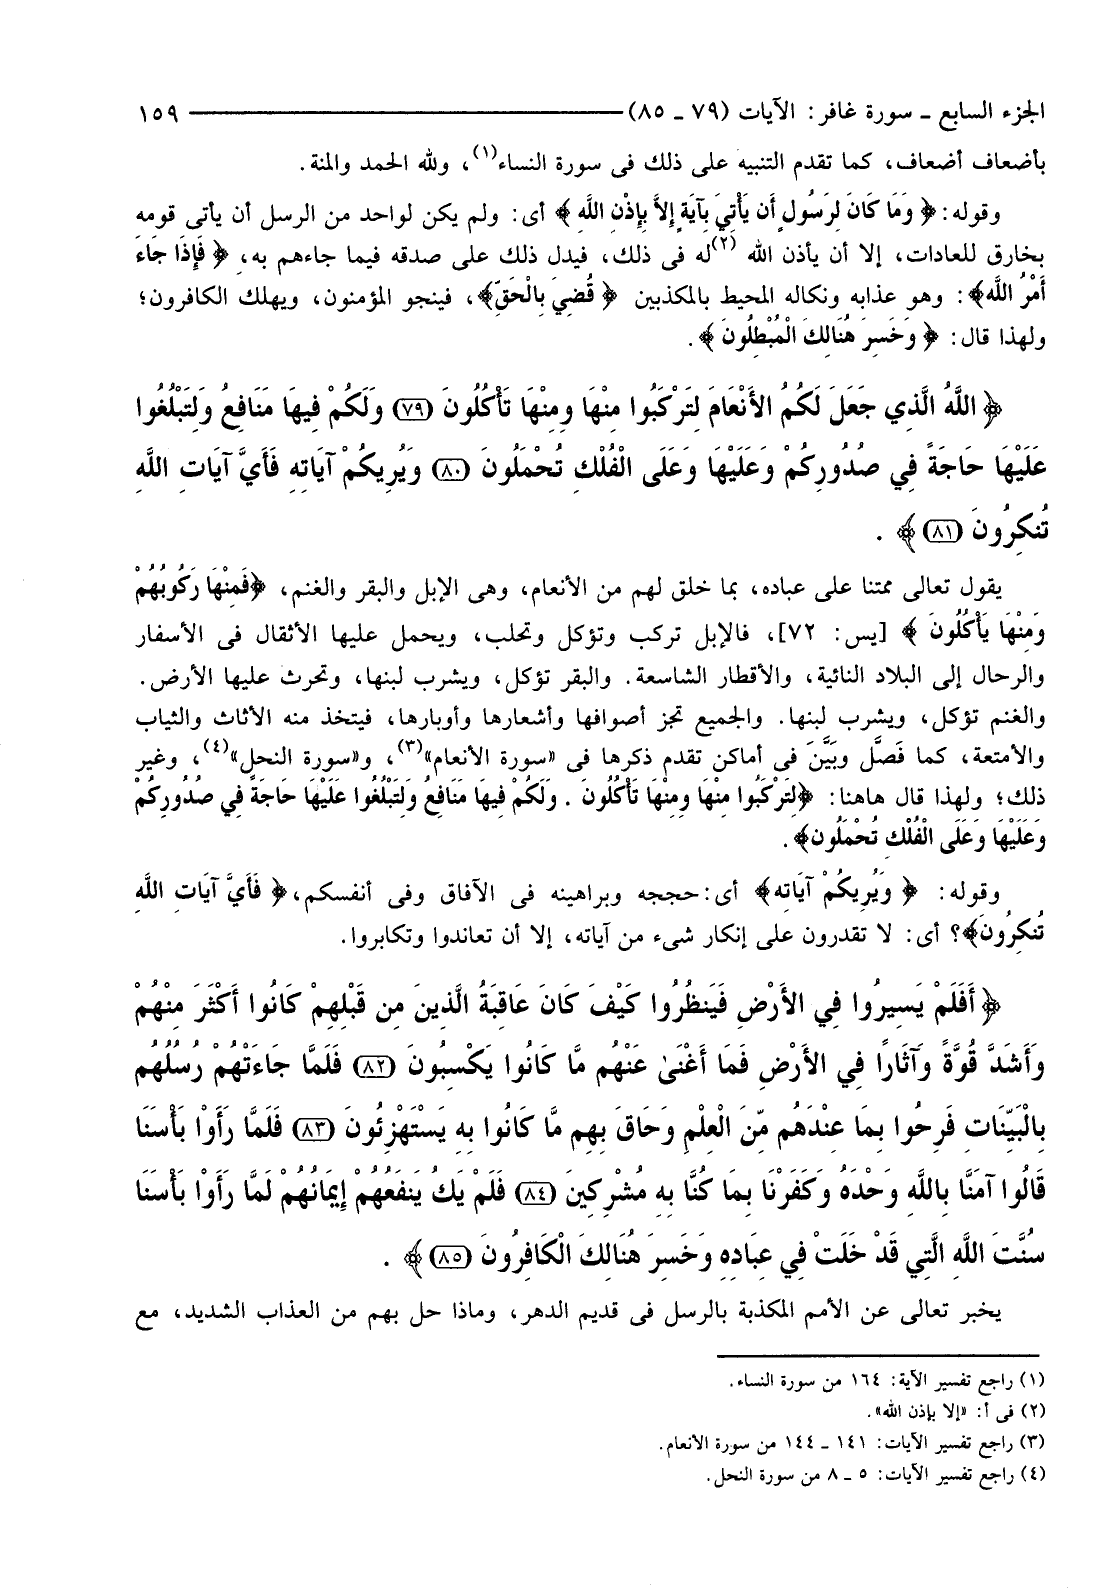 الجزء السابع ـ سورة غافر: الآيات (٧٩ ـ ٨٥) ١٥٩
بأضعاف أضعاف، كما تقدم التنبيه على ذلك فى سورة النساء(١)، ولله الحمد والمنة.
وقوله: ﴿ وَمَا كَانَ لِرَسُولٍ أَن يَأْتِيَ بِآيَةٍ إِلاَّ بِإِذْنِ اللَّهِ ﴾ أى: ولم يكن لواحد من الرسل أن يأتى قومه
بخارق للعادات، إلا أن يأذن الله (٢)له فى ذلك، فيدل ذلك على صدقه فيما جاءهم به، ﴿ فَإِذَا جَاءَ
أَمْرُ اللَّهِ﴾: وهو عذابه ونكاله المحيط بالمكذبين ﴿ قُضِيَ بِالْحَقِّ﴾، فينجو المؤمنون، ويهلك الكافرون؛
ولهذا قال: ﴿ وَخَسِرَ هُنَالِكَ الْمُبْطِلُونَ ﴾.
﴿ اللَّهُ الَّذِي جَعَلَ لَكُمُ الأَنْعَامَ لِتَرْكَبُوا مِنْهَا وَمِنْهَا تَأْكُلُونَ (٧٩) وَلَكُمْ فِيهَا مَنَافِعُ وَلِتَبْلُغُوا
عَلَيْهَا حَاجَةً فِي صُدُورِكُمْ وَعَلَيْهَا وَعَلَى الْفُلْكِ تُحْمَلُونَ (٨٠) وَيُرِيكُمْ آيَاتِهِ فَأَيَّ آيَاتِ اللَّهِ
تُنكِرُونَ (٨١) ﴾ .
يقول تعالى ممتنا على عباده، بما خلق لهم من الأنعام، وهى الإبل والبقر والغنم، ﴿فَمِنْهَا رَكُوبُهُمْ
وَمِنْهَا يَأْكُلُونَ ﴾ [يس: ٧٢]، فالإبل تركب وتؤكل وتحلب، ويحمل عليها الأثقال فى الأسفار
والرحال إلى البلاد النائية، والأقطار الشاسعة. والبقر تؤكل، ويشرب لبنها، وتحرث عليها الأرض.
والغنم تؤكل، ويشرب لبنها. والجميع تجز أصوافها وأشعارها وأوبارها، فيتخذ منه الأثاث والثياب
والأمتعة، كما فَصَّل وبَيَّنَ فى أماكن تقدم ذكرها فى «سورة الأنعام»(٣)، و«سورة النحل»(٤)، وغير
ذلك؛ ولهذا قال هاهنا: ﴿لِتَرْكَبُوا مِنْهَا وَمِنْهَا تَأْكُلُونَ . وَلَكُمْ فِيهَا مَنَافِعُ وَلِتَبْلُغُوا عَلَيْهَا حَاجَةً فِي صُدُورِكُمْ
وَعَلَيْهَا وَعَلَى الْفُلْكِ تُحْمَلُونَ﴾.
وقوله: ﴿ وَيُرِيكُمْ آيَاتِهِ﴾ أى: حججه وبراهينه فى الآفاق وفى أنفسكم، ﴿ فَأَيَّ آيَاتِ اللَّهِ
تُنكِرُونَ﴾؟ أى: لا تقدرون على إنكار شىء من آياته، إلا أن تعاندوا وتكابروا.
﴿ أَفَلَمْ يَسِيرُوا فِي الأَرْضِ فَيَنظُرُوا كَيْفَ كَانَ عَاقِبَةُ الَّذِينَ مِن قَبْلِهِمْ كَانُوا أَكْثَرَ مِنْهُمْ
وَأَشَدَّ قُوَّةً وَآثَارًا فِي الأَرْضِ فَمَا أَغْنَىٰ عَنْهُم مَّا كَانُوا يَكْسِبُونَ (٨٢) فَلَمَّا جَاءَتْهُمْ رُسُلُهُم
بِالْبَيِّنَاتِ فَرِحُوا بِمَا عِندَهُم مِّنَ الْعِلْمِ وَحَاقَ بِهِم مَّا كَانُوا بِهِ يَسْتَهْزِئُونَ (٨٣) فَلَمَّا رَأَوْا بَأْسَنَا
قَالُوا آمَنَّا بِاللَّهِ وَحْدَهُ وَكَفَرْنَا بِمَا كُنَّا بِهِ مُشْرِكِينَ (٨٤) فَلَمْ يَكُ يَنفَعُهُمْ إِيمَانُهُمْ لَمَّا رَأَوْا بَأْسَنَا
سُنَّتَ اللَّهِ الَّتِي قَدْ خَلَتْ فِي عِبَادِهِ وَخَسِرَ هُنَالِكَ الْكَافِرُونَ (٨٥) ﴾ .
يخبر تعالى عن الأمم المكذبة بالرسل فى قديم الدهر، وماذا حل بهم من العذاب الشديد، مع
(١) راجع تفسير الآية: ١٦٤ من سورة النساء.
(٢) فى أ: «إلا بإذن الله».
(٣) راجع تفسير الآيات: ١٤١ ـ ١٤٤ من سورة الأنعام.
(٤) راجع تفسير الآيات: ٥ ـ ٨ من سورة النحل.